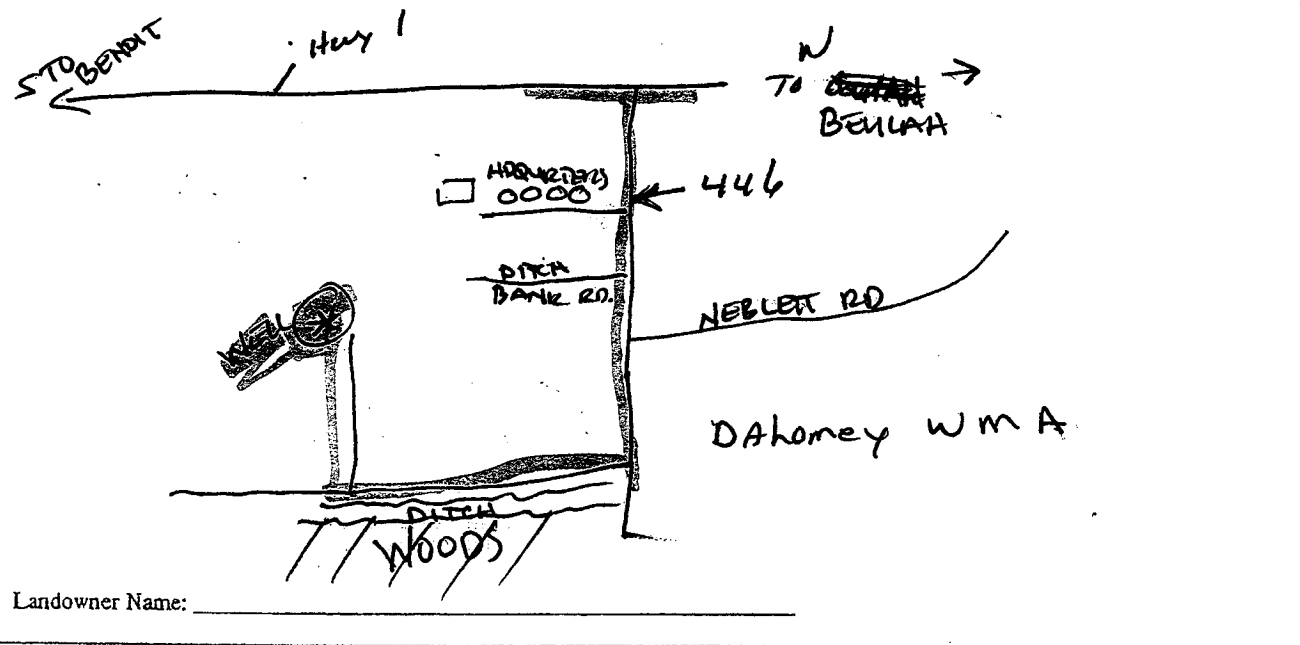 S TO BENOIT
Hwy 1
N
TO
BEULAH
HDQUARTERS
446
DITCH
BANK RD.
NEBLETT RD
WELL
DAhomey WMA
DITCH
WOODS
Landowner Name: